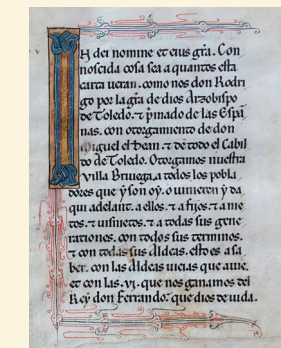 In dei nomine et eius gr̄a. Con
noscida cosa sea a quantos esta
carta ueran. como nos don Rodri
go por la gr̄a de dios Arzobispo
de Toledo. ⁊ p̄mado de las Espā
nas. con otorgamiento de don
Miguel el dean. ⁊ de todo el Cabil
do de Toledo. Otorgamos nuestra
villa Briuega. a todos los pobla
dores que ý son oý. o uinieren ý da
qui adelant. a ellos. ⁊ a fijos. ⁊ a nie
tos. ⁊ uisnietos. ⁊ a todas sus gene
rationes. con todos sus terminos.
⁊ con todas sus aldeas. esto es a sa
ber. con las aldeas uieias que aue.
et con las .vj. que nos ganamos del
Reý don Ferrando. que dios de uida.